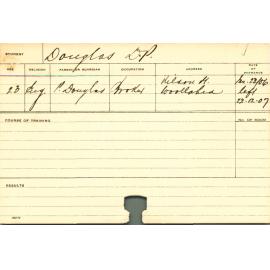 STUDENT Douglas L.P.
AGE RELIGION PARENT OR GUARDIAN OCCUPATION ADDRESS DATE OF ENTRANCE
23 P. Douglas Broker Nelson St Woollahra
left
22.12.07
COURSE OF TRAINING No. OF ROOM
RESULTS